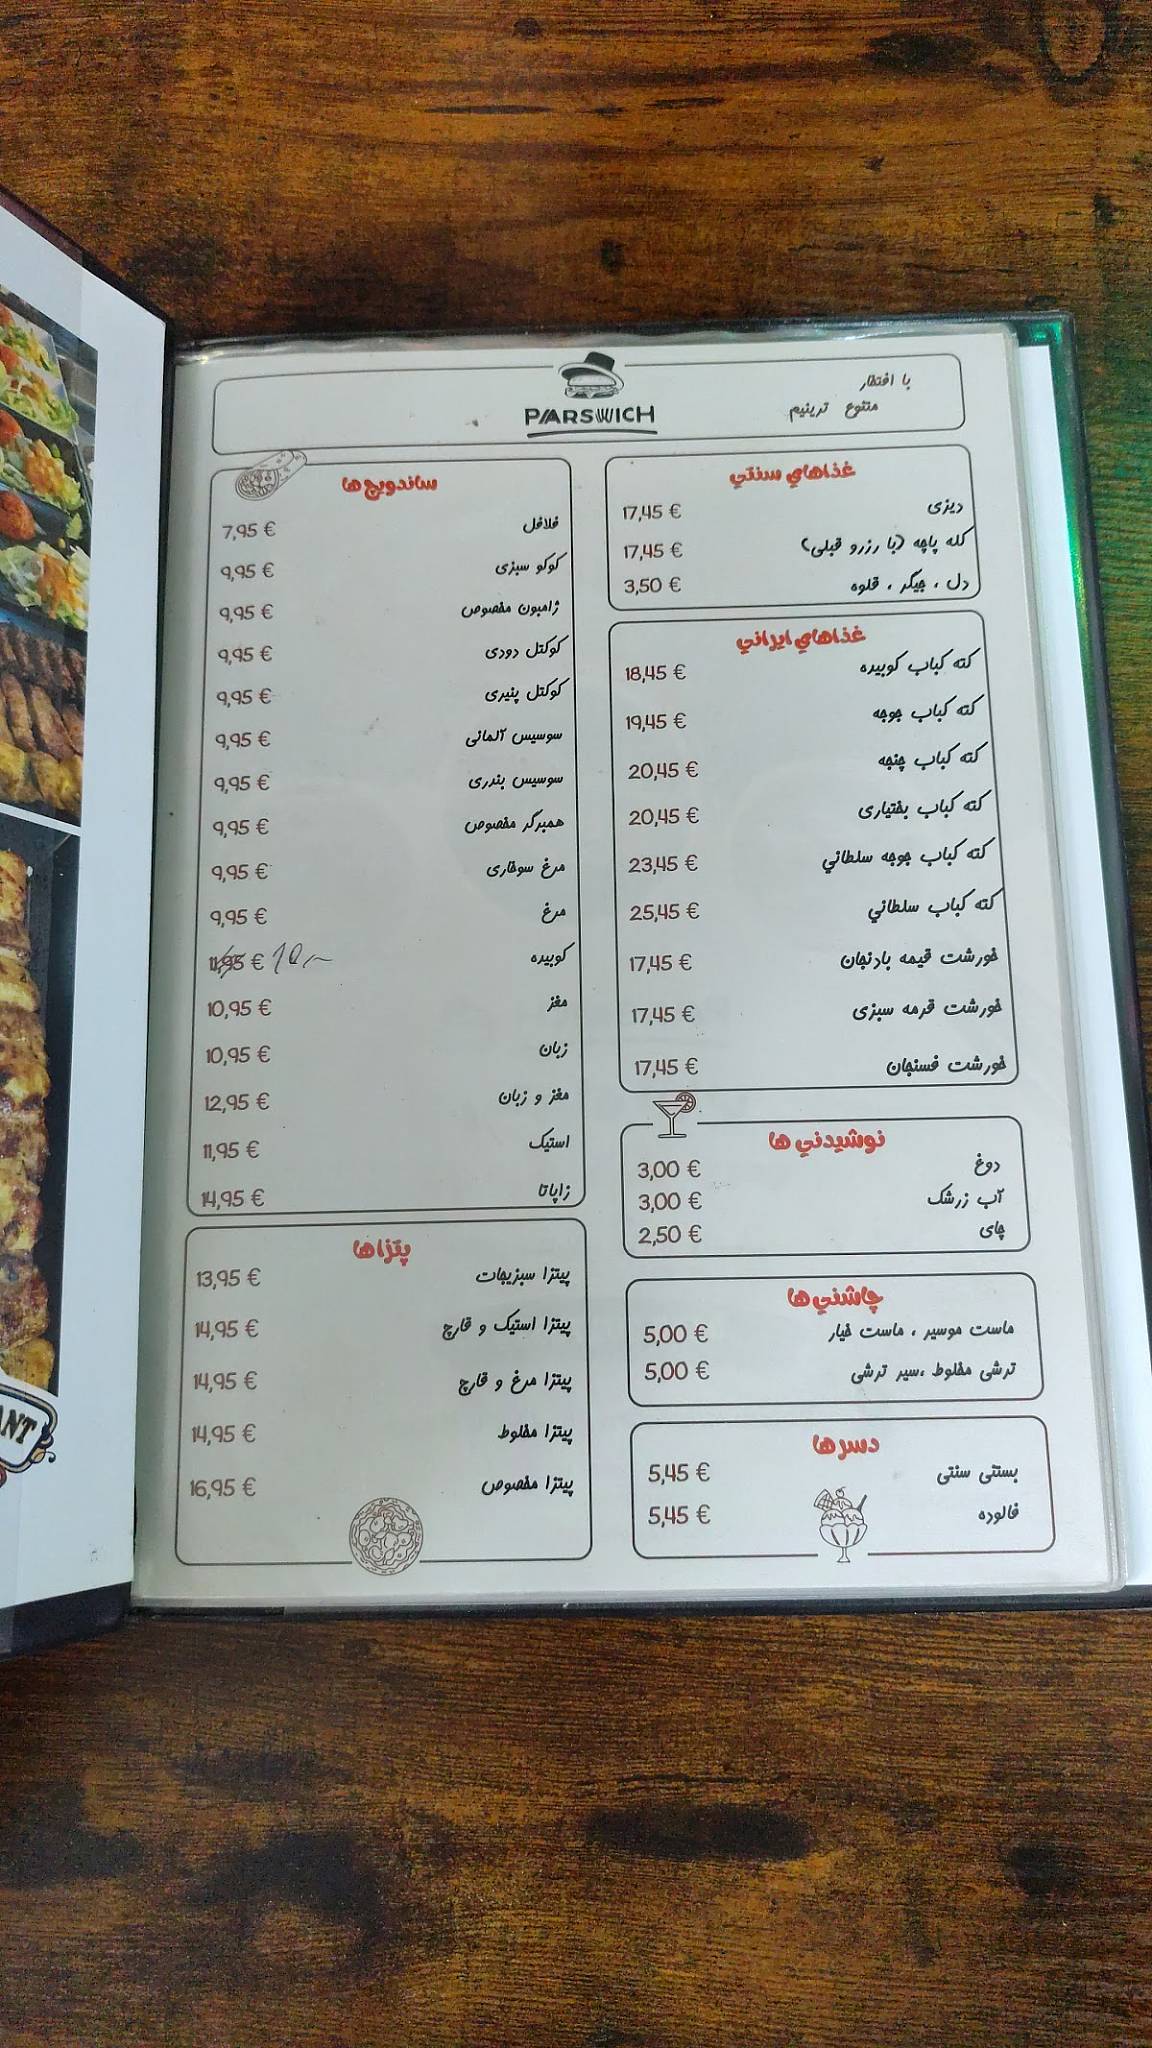 با افتخار
متنوع ترینیم
PARSWICH
غذاهاي سنتي
دیزی 17,45 €
کله پاچه (با رزرو قبلی) 17,45 €
دل ، جیگر ، قلوه 3,50 €
غذاهاي ايراني
کته کباب کوبیده 18,45 €
کته کباب جوجه 19,45 €
کته کباب چنجه 20,45 €
کته کباب بختیاری 20,45 €
کته کباب جوجه سلطاني 23,45 €
کته کباب سلطاني 25,45 €
خورشت قیمه بادنجان 17,45 €
خورشت قرمه سبزی 17,45 €
خورشت فسنجان 17,45 €
نوشيدني ها
دوغ 3,00 €
آب زرشک 3,00 €
چای 2,50 €
چاشني ها
ماست موسیر ، ماست خیار 5,00 €
ترشی مخلوط ،سیر ترشی 5,00 €
دسرها
بستنی سنتی 5,45 €
فالوده 5,45 €
ساندويچ ها
فلافل 7,95 €
کوکو سبزی 9,95 €
ژامبون مخصوص 9,95 €
کوکتل دودی 9,95 €
کوکتل پنیری 9,95 €
سوسیس آلمانی 9,95 €
سوسیس بندری 9,95 €
همبرگر مخصوص 9,95 €
مرغ سوخاری 9,95 €
مرغ 9,95 €
کوبیده 11,95 € 10,-
مغز 10,95 €
زبان 10,95 €
مغز و زبان 12,95 €
استیک 11,95 €
زاپاتا 14,95 €
پتزاها
پیتزا سبزیجات 13,95 €
پیتزا استیک و قارچ 14,95 €
پیتزا مرغ و قارچ 14,95 €
پیتزا مخلوط 14,95 €
پیتزا مخصوص 16,95 €
ANT